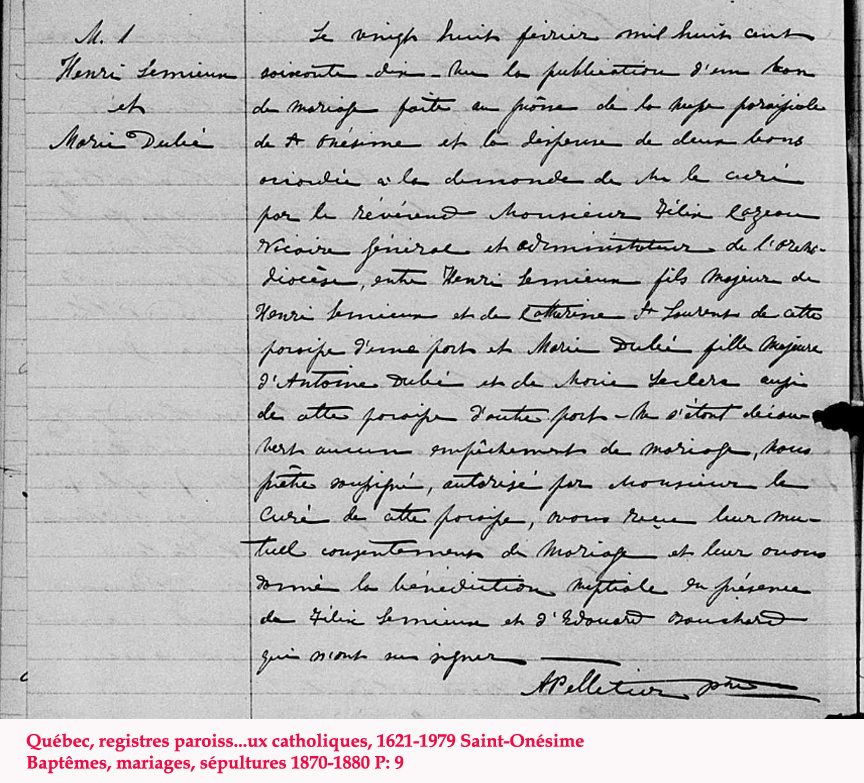 M. 1
Henri Lemieux
et
Marie Dubé
Le vingt huit février mil huit cent
soixante-dix - Vu la publication d'un ban
de mariage faite au prône de la messe paroissiale
de St Onésime et la dispense de deux bans
accordée à la demande de Mr le curé
par le révérend Monsieur Félix Cazeau
Vicaire Général et administrateur de l'archi-
diocèse, entre Henri Lemieux fils majeur de
Henri Lemieux et de Catherine St Laurent de cette
paroisse d'une part et Marie Dubé fille majeure
d'Antoine Dubé et de Marie Leclerc aussi
de cette paroisse d'autre part - ne s'étant décou-
vert aucun empêchement de mariage, nous
prêtre soussigné, autorisé par Monsieur le
Curé de cette paroisse, avons reçu leur mu-
tuel consentement de mariage et leur avons
donné la bénédiction nuptiale en présence
de Félix Lemieux et d'Edouard Bouchard
qui n'ont su signer
A Pelletier ptre
Québec, registres paroiss...ux catholiques, 1621-1979 Saint-Onésime
Baptêmes, mariages, sépultures 1870-1880 P: 9